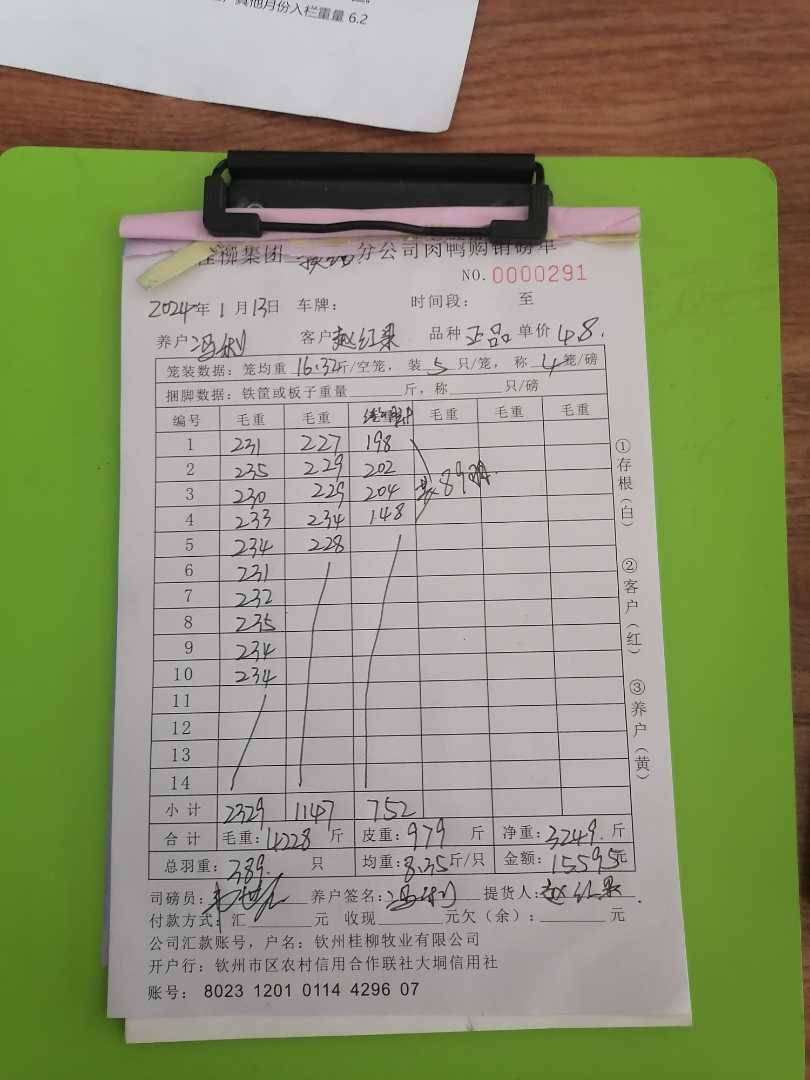 其他月份入栏重量 6.2
桂柳集团 分公司肉鸭购销磅单
NO.0000291
2024年 1 月 13日 车牌： 时间段： 至
养户 冯 客户 赵红果 品种 正品 单价 4.8.
笼装数据：笼均重 16.32斤/空笼， 装 5 只/笼， 称 4 笼/磅
捆脚数据：铁筐或板子重量 斤，称 只/磅
编号 毛重 毛重 毛重 毛重 毛重
1 231 227 198
2 235 229 202
3 230 229 204 共89羽.
4 233 234 148
5 234 228
6 231
7 232
8 235
9 234
10 234
11
12
13
14
小计 2329 1147 752
合计 毛重：4228 斤 皮重：979 斤 净重：3249.斤
总羽重：389. 只 均重：8.35斤/只 金额：15595元
司磅员： 养户签名：冯 提货人：赵红果
付款方式：汇 元 收现 元欠（余）： 元
公司汇款账号，户名：钦州桂柳牧业有限公司
开户行：钦州市区农村信用合作联社大垌信用社
账号： 8023 1201 0114 4296 07
①存根（白）
②客户（红）
③养户（黄）